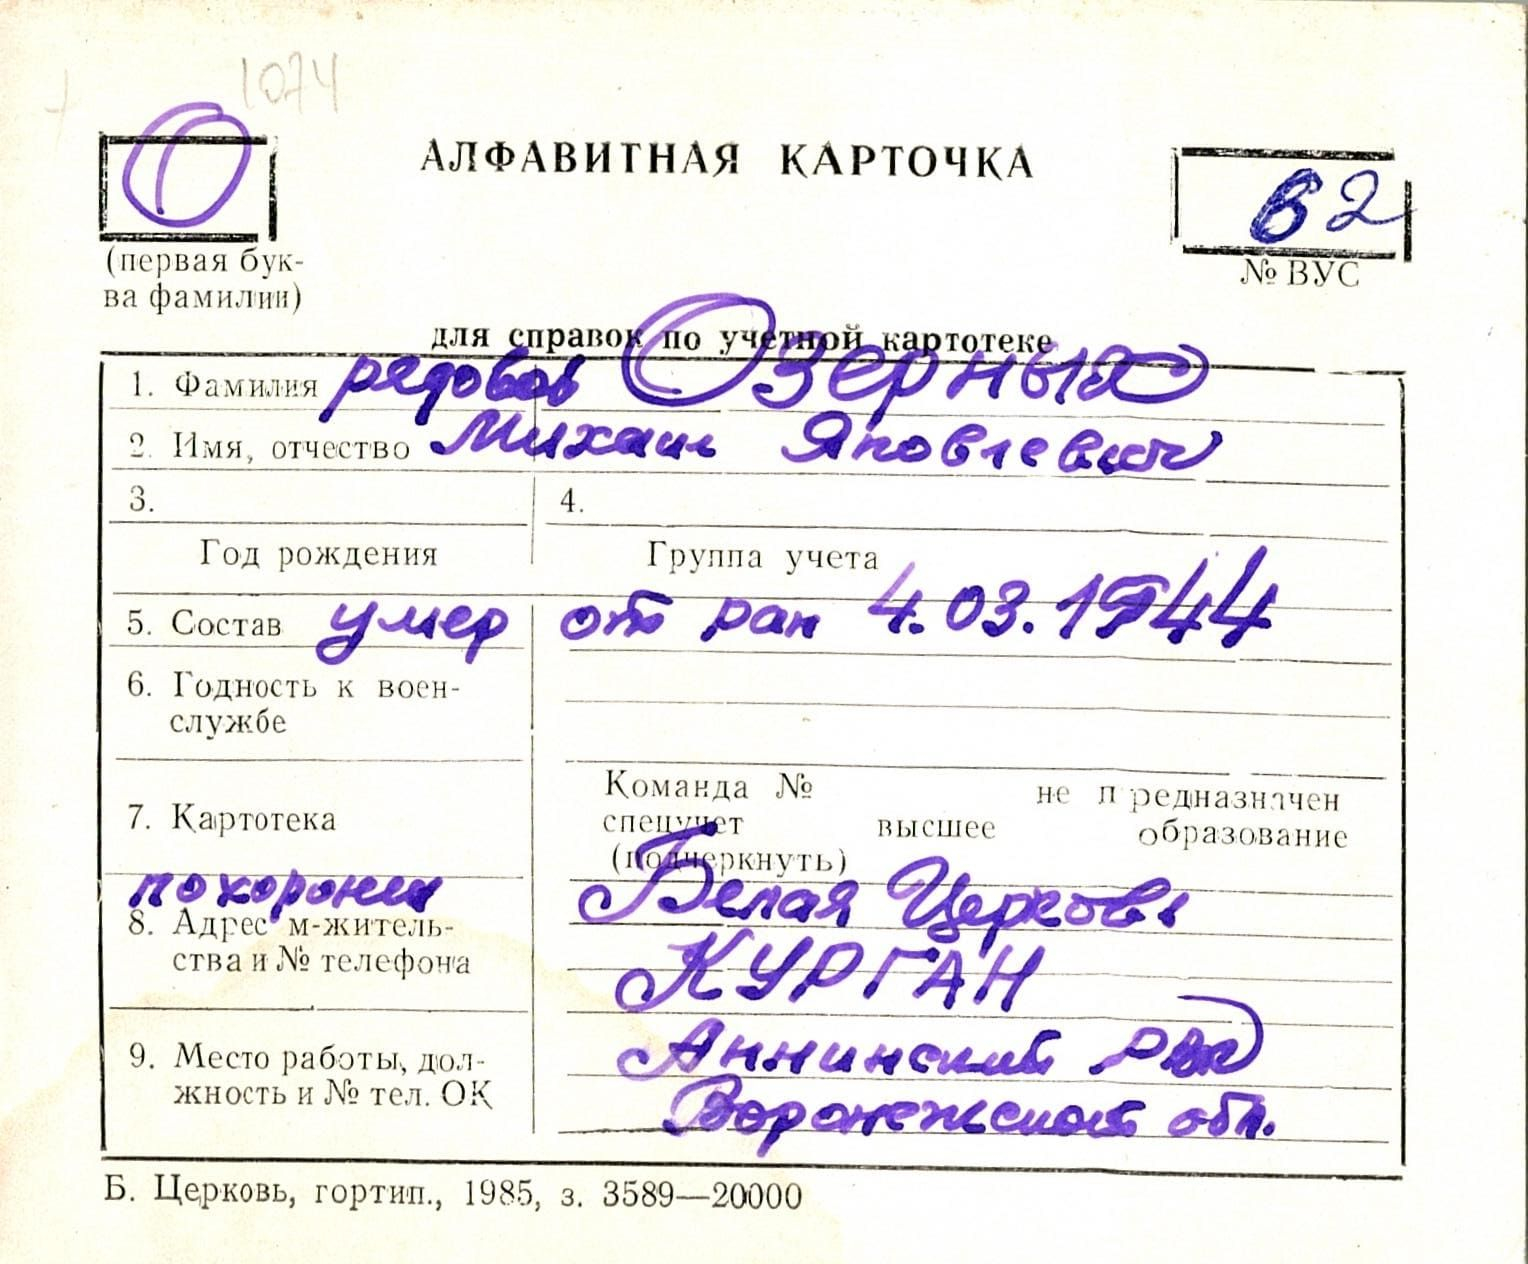 1074
О
АЛФАВИТНАЯ КАРТОЧКА
62
(первая бук-
ва фамилии)
№ ВУС
для справок по учетной картотеке
1. Фамилия рядовой Озерных
2. Имя, отчество Михаил Яковлевич
3. 4.
Год рождения Группа учета
5. Состав умер от ран 4.03.1944
6. Годность к воен-
службе
Команда № не предназначен
7. Картотека спецучет высшее образование
(подчеркнуть)
похоронен Белая Церковь
8. Адрес м-житель-
ства и № телефона КУРГАН
9. Место работы, дол-
жность и № тел. ОК
Аннинский РВК
Воронежской обл.
Б. Церковь, гортип., 1985, з. 3589—20000